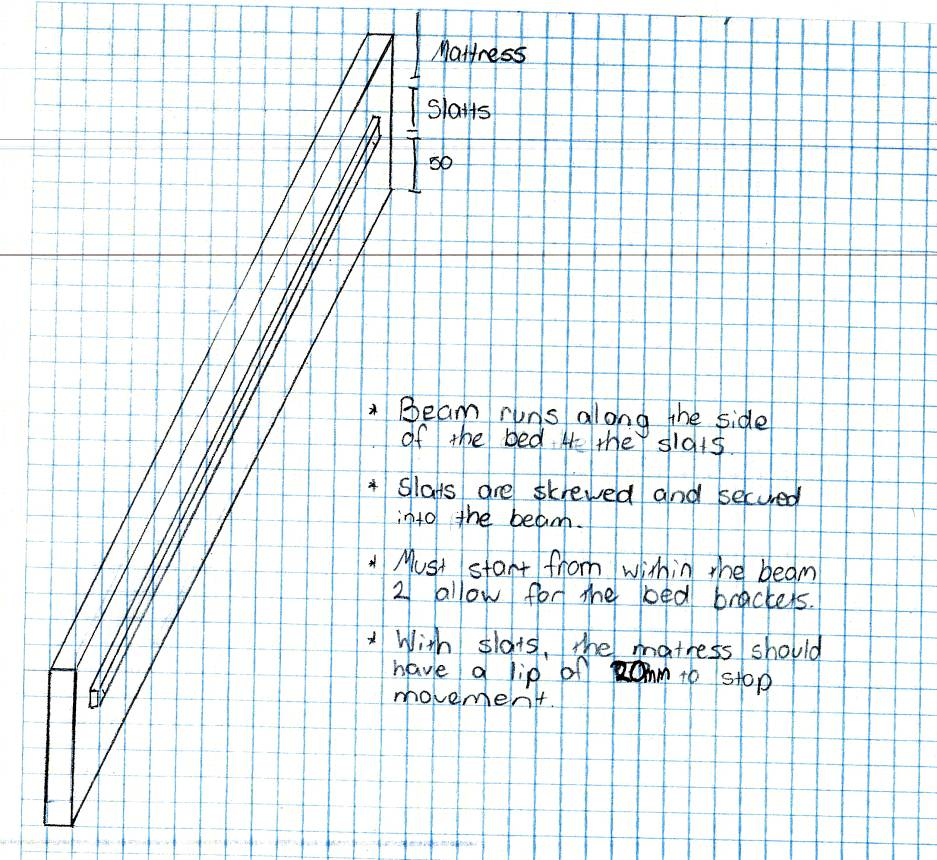 Mattress
Slatts
50
* Beam runs along the side
of the bed 4 the slats.
* Slats are skrewed and secured
into the beam.
* Must start from within the beam
2 allow for the bed brackets.
* With slats, the matress should
have a lip of 20mm to stop
movement.